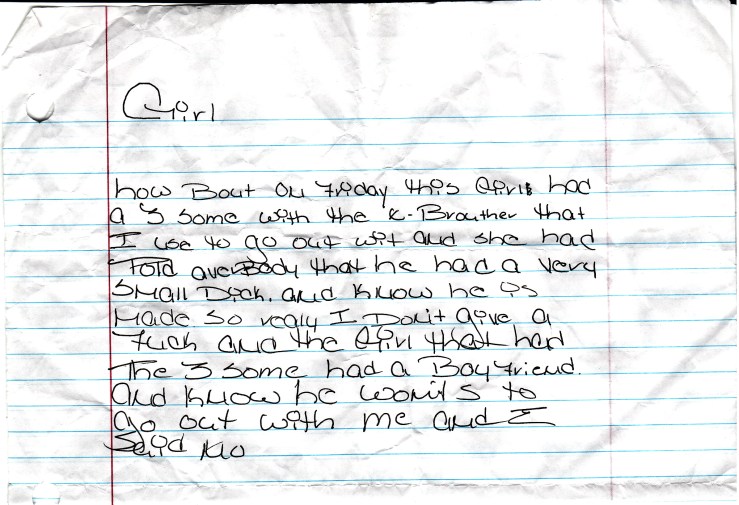 Girl
how Bout on Friday this Girls had
a 3 some with the k-Brouther that
I use to go out wit and she had
Told averBody that he had a very
Small Dick. and know he is
Made so realy I Don't give a
Fuck and the Girl that had
The 3 some had a Boy friend.
and know he wont's to
go out with me and I
Said No